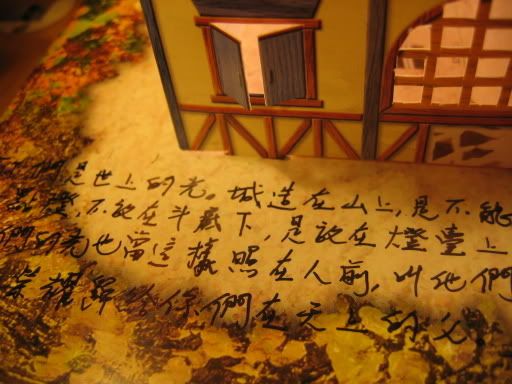 們是世上的光。城造在山上,是不能
點燈,不放在斗底下,是放在燈臺上
們的光也當這樣照在人前,叫他們
榮耀歸給你們在天上的父。